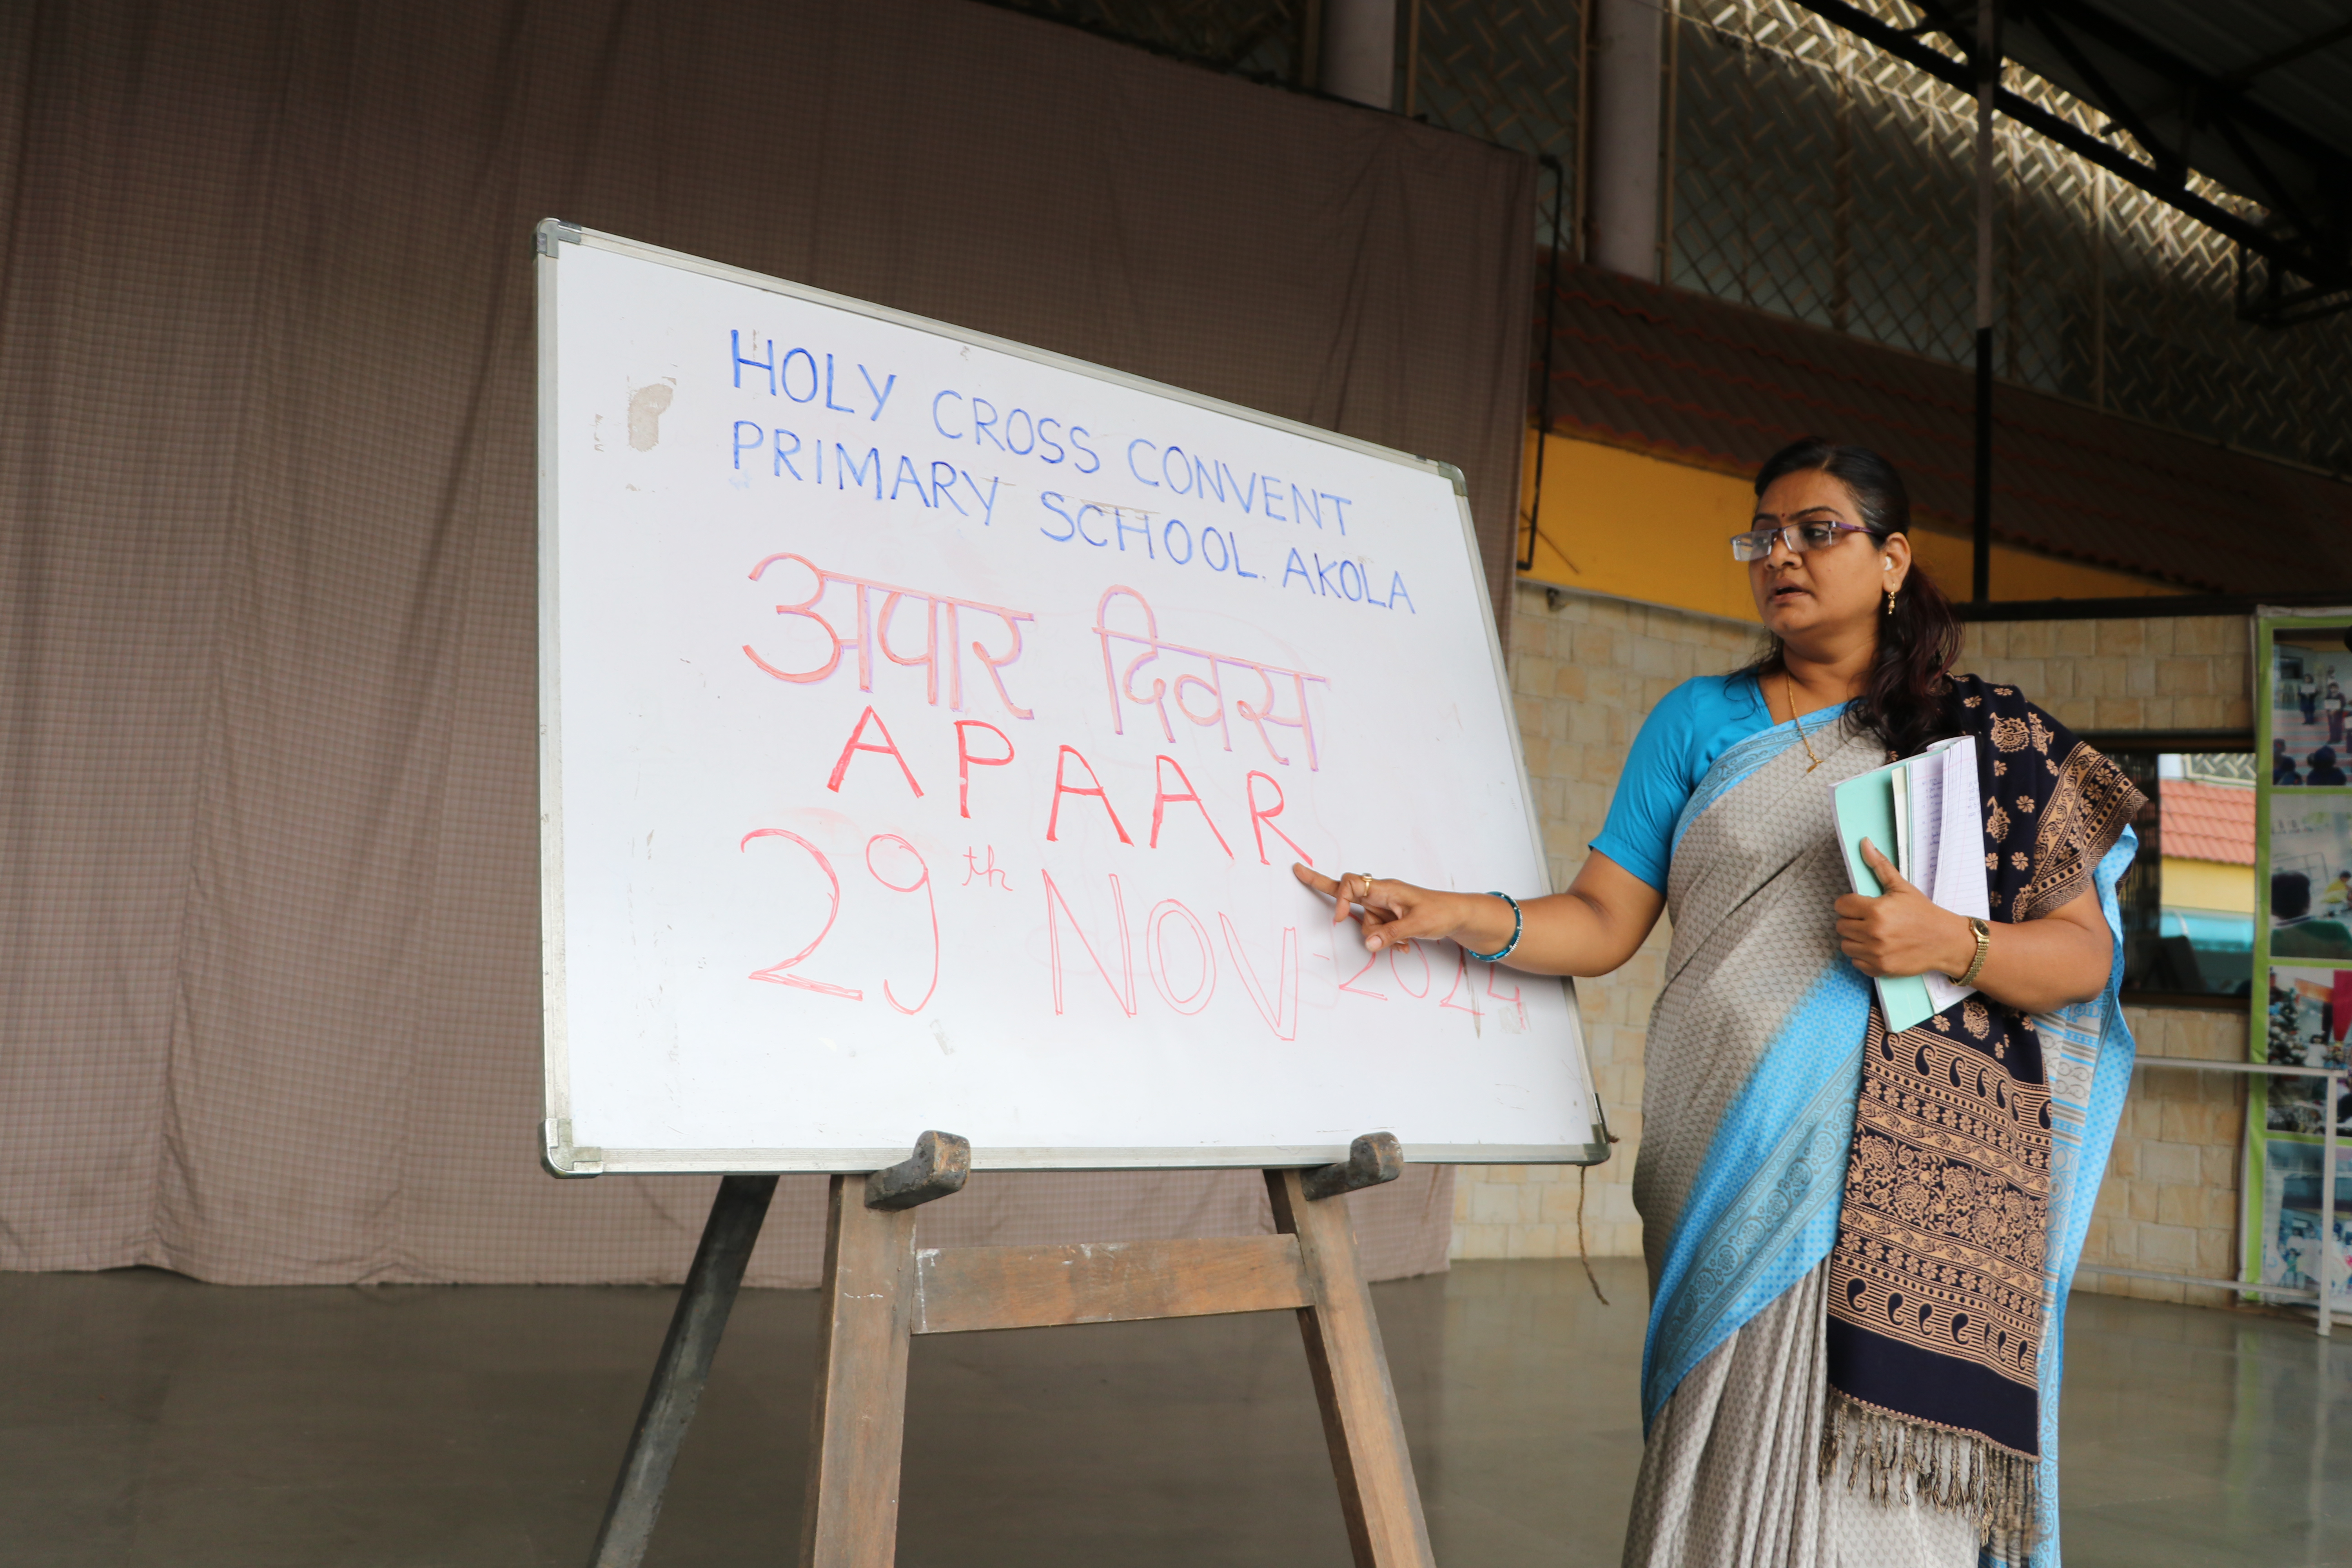 HOLY CROSS CONVENT
PRIMARY SCHOOL. AKOLA
अपार दिवस
APAAR
29th NOV 2024